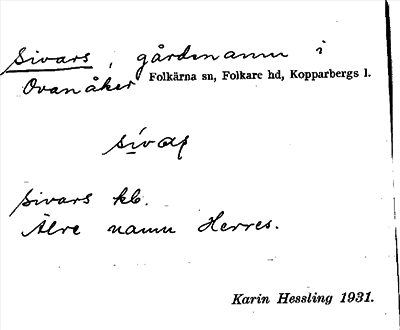 Sivars, gårdsnamn i
Ovanåker Folkärna sn, Folkare hd, Kopparbergs l.
Sivars kb.
Älre namn Herres.
Karin Hessling 1931.